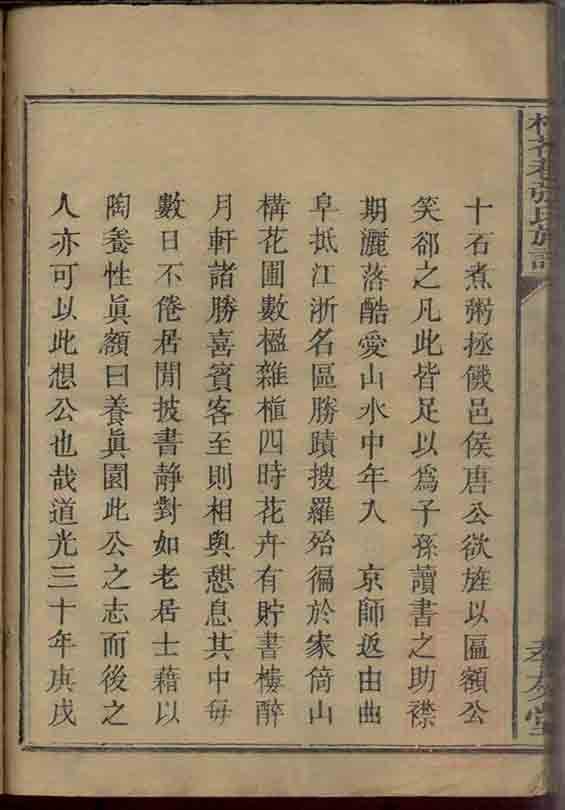 十石煮粥拯饑邑侯唐公欲旌以匾額公
笑郤之凡此皆足以爲子孫讀書之助襟
期灑落酷愛山水中年入　京師返由曲
阜抵江浙名區勝蹟搜羅殆徧於家倚山
構花圃數楹雜植四時花卉有貯書樓醉
月軒諸勝喜賓客至則相與憇息其中每
數日不倦居閒披書静對如老居士藉以
陶養性眞額曰養眞園此公之志而後之
人亦可以此想公也哉道光三十年庚戌
孝友堂